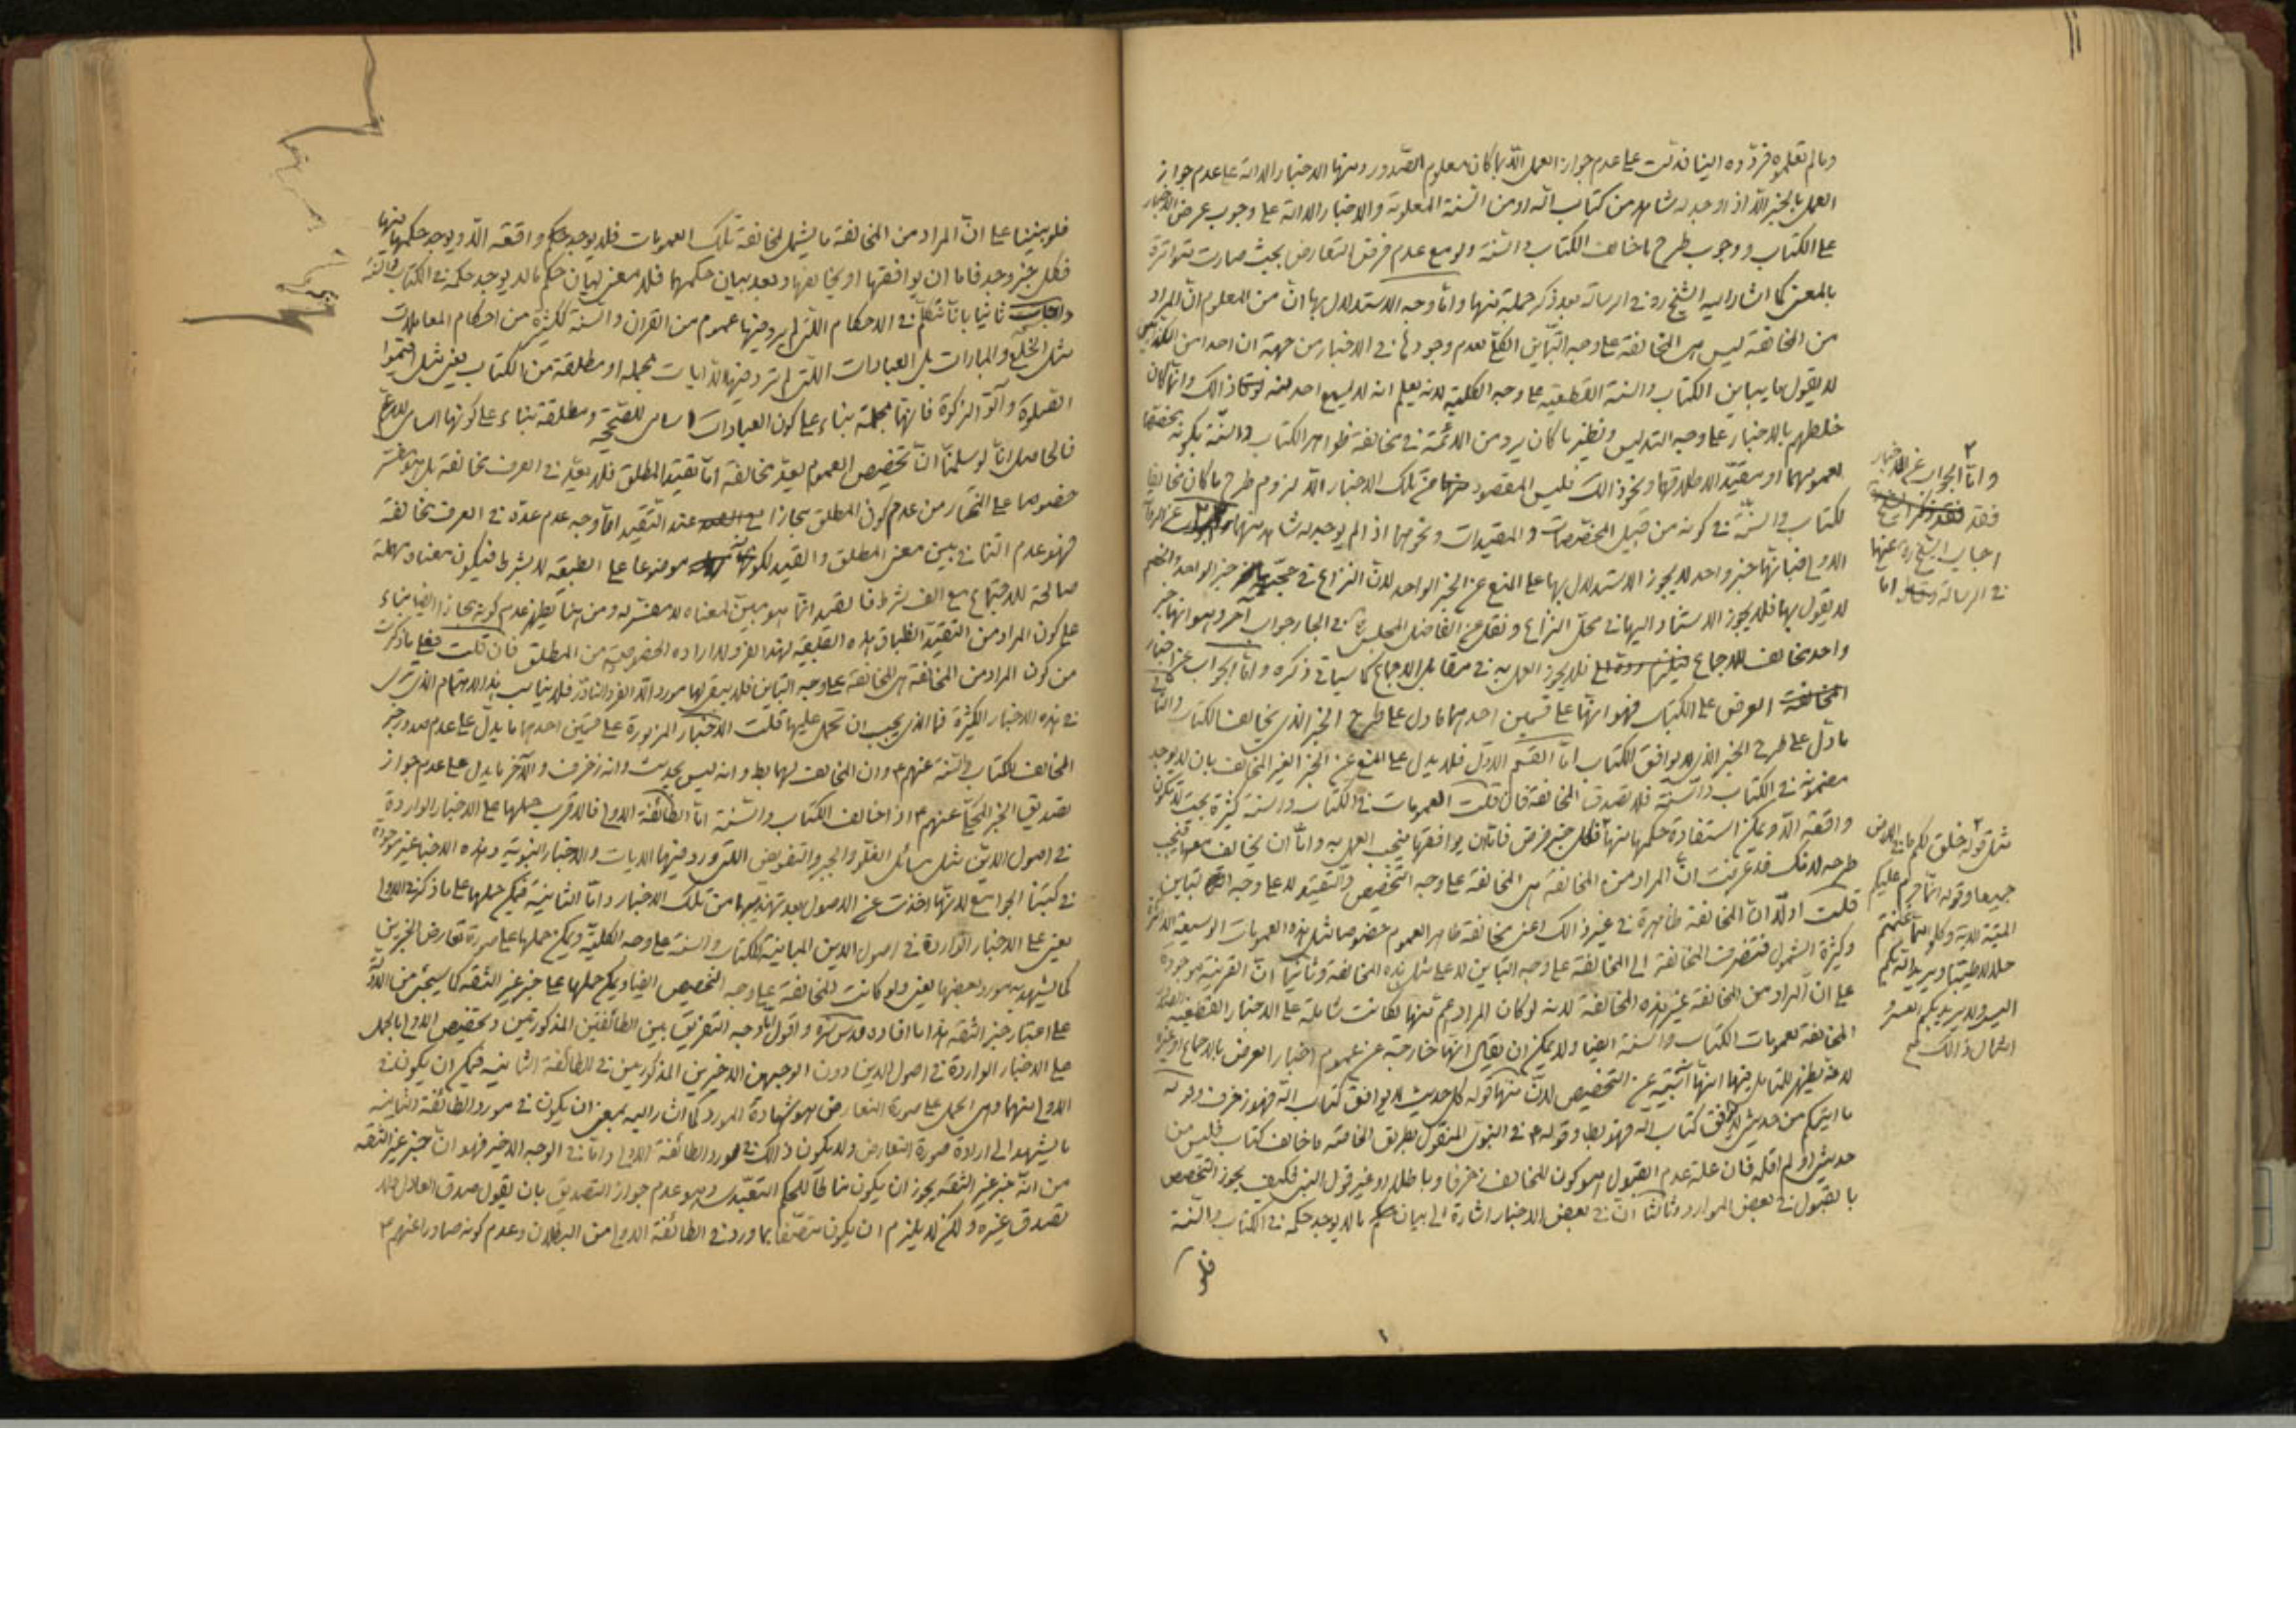 وما لم تعلموه فردّوه الينا فدلّت على عدم جواز العمل الّا بما كان معلوم الصّدور ومنها الاخبار الدالة على عدم جواز
العمل بالخبر الّا اذا وجد له شاهد من كتاب اللّه او من السّنة المعلومة والاخبار الدالة على وجوب عرض الاخبار
على الكتاب ووجوب طرح ما خالف الكتاب والسّنة ولو مع عدم فرض التعارض بحيث صارت متواترة
بالمعنى كما اشار اليه الشيخ ره في الرسالة بعد ذكر جملة منها وامّا وجه الاستدلال بها انّ من المعلوم انّ المراد
من المخالفة ليس هى المخالفة على وجه التباين الكلّى لعدم وجودها في الاخبار من جهة ان احدا من الكذّابين
لا يقول ما يباين الكتاب والسنة القطعية على وجه الكلية لانه يعلم انه لا يسمع احد منه ذالك وانّما كان
خلطهم بالاخبار على وجه التدليس ونظير ما كان يرد من الائمّة في مخالفة ظواهر الكتاب والسّنة بكونه مخصّصا
لعمومهما او مقيّدا لاطلاقهما ونحو ذالك فليس المقصود من تلك الاخبار الّا لزوم طرح ما كان مخالفا
لكتاب والسنّة في كونه من قبيل المخصّصات والمقيدات ونحوهما اذا لم يوجد له شاهد منهما عن الرواية
الاولى فبانّها خبر واحد لا يجوز الاستدلال بها على المنع عن الخبر الواحد لانّ النزاع في حجّية خبر الواحد والخصم
لا يقول بها فلا يجوز الاستناد اليها في محلّ النزاع ونقل عن الفاضل المجلسى في البحار جواب آخر وهو انها خبر
واحد مخالف للاجماع فلا يجوز العمل به في مقابل الاجماع كما سياتي ذكره وامّا الجواب عن اخبار
العرض على الكتاب فهو انّها على قسمين احدهما ما دل على طرح الخبر الذى يخالف الكتاب والثاني
ما دلّ على طرح الخبر الذى لا يوافق الكتاب امّا القسم الاوّل فلا يدل على المنع عن الخبر الغير المخالف بان لا يوجد
مضمونه في الكتاب والسنّة فلا تصدق المخالفة فان قلت العمومات في الكتاب والسنة كثيرة بحيث لا تكون
واقعة الّا ويمكن استفادة حكمها منها فكل خبر فرض فامّا ان يوافقها فيجب العمل به وامّا ان يخالف معها فيجب
طرحه لانك قد عرفت انّ المراد من المخالفة هى المخالفة على وجه التخصيص والتقييد لا على وجه التباين
قلت اولا انّ المخالفة ظاهرة في غير ذالك اعنى مخالفة ظاهر العموم خصوصا مثل هذه العمومات الوسيعة الدائرة
وكثيرة الشمول فتنصرف المخالفة الى المخالفة على وجه التباين لا على مثل هذه المخالفة وثانيا انّ القرينة موجودة
على ان المراد من المخالفة غير هذه المخالفة لانه لو كان المراد اعم منها لكانت شاملة على الاخبار القطعية الصدور
المخالفة لعمومات الكتاب والسنة ايضا ولا يمكن ان يقال انها خارجة عن عموم اخبار العرض بالاجماع او غيره
لانه يظهر للمتامل فيها انها آبية عن التخصيص لانّ منها قوله كل حديث لا يوافق كتاب اللّه فهو زخرف وقوله
ما اتيكم من حديث لا يوافق كتاب اللّه فهو بط وقوله ص في النبوى المنقول بطريق الخاصّة ما خالف كتاب فليس من
حديثى او لم اقله فان علة عدم القبول هو كون المخالف زخرفا وباطلا او غير قول النبى فكيف يجوز التخصيص
بالقبول في بعض الموارد وثالثا انّ في بعض الاخبار اشارة الى بيان حكم ما لا يوجد حكمه في الكتاب والسّنة
فلو
وامّا الجواب عن الاخبار
فقد
اجاب الشيخ ره عنها
في الرسالة امّا
مثل قوله خلق لكم ما في الارض
جميعا وقوله انّما حرّم عليكم
الميتة الآية وكلوا ممّا غنمتم
حلالا طيّبا ويريد اللّه بكم
اليسر ولا يريد بكم العسر و
امثال ذالك
فلو بنينا على انّ المراد من المخالفة ما يشمل لمخالفة تلك العمومات فلا يوجد واقعة الّا ويوجد حكمها منها
فكل خبر وجد فاما ان يوافقها او يخالفها وبعد بيان حكمهما فلا معنى لبيان حكم ما لا يوجد حكمه في الكتاب والسنّة
واجاب ثانيا بانّا نتكلّم في الاحكام اللتى لم يرد فيها عموم من القران والسنة ككثيرة من احكام المعاملات
مثل الخلع والمبارات بل العبادات اللتى لم ترد فيها الّا ايات مجملة او مطلقة من الكتاب يعنى مثل اقيموا
الصلوة وآتوا الزكوة فانها مجملة بناء على كون العبادات اسامى للصّحيحة ومطلقة بناء على كونها اسامى للاعمّ
فالحاصل انّا لو سلمنا انّ تخصيص العموم يعدّ مخالفة امّا تقييد المطلق فلا يعدّ في العرف مخالفة بل هو مفسّر
خصوصا على المختار من عدم كون المطلق مجازا عند التقييد امّا وجه عدم عدّه في العرف مخالفة
فهو عدم التنافي بين معنى المطلق والقيد لكونها موضوعا على الطبيعة لا بشرط فيكون معناه مهملة
صالحة للاجتماع مع الف شرط فالقيد انّما هو مبيّن لمعناه لا مفسّر له ومن هنا يظهر عدم كونه مجازا ايضا بناء
على كون المراد من التقييد انطباق هذه الطبيعة لهذا الفرد لا ارادة الخصوصية من المطلق فان قلت فعلى ما ذكرت
من كون المراد من المخالفة هى المخالفة على وجه التباين فلا يبقى لها مورد الّا الفرد النادر فلا يناسب بهذا الاهتمام الذى ترى
في هذه الاخبار الكثيرة فما الذى يجب ان تحمل عليها قلت الاخبار المزبورة على قسمين احدهما ما يدلّ على عدم صدور خبر
المخالف للكتاب والسنة عنهم ع وان المخالف لهما بط وانه ليس بحديث وانه زخرف والآخر ما يدل على عدم جواز
تصديق الخبر المحكىّ عنهم ع اذا خالف الكتاب والسّنة امّا الطائفة الاولى فالاقرب حملها على الاخبار الواردة
في اصول الدين مثل مسائل الغلو والجبر والتفويض اللتى ورد فيها الايات والاخبار النبوية وهذه الاخبار غير موجودة
في كتبنا الجوامع لانّها اخذت عن الاصول بعد تهذيبها من تلك الاخبار وامّا الثانية فيمكن حملها على ما ذكر في الاولى
يعنى على الاخبار الواردة في اصول الدين المباينة للكتاب والسنة على وجه الكلية ويمكن حملها على صورة تعارض الخبرين
كما يشهد به مورد بعضها يعنى ولو كانت المخالفة على وجه التخصيص ايضا ويمكن حملها على خبر غير الثقة كما سيجئ من الادلّة
على اعتبار خبر الثقة هذا ما افاده قدس سرّه واقول امّا وجه التفريق بين الطائفتين المذكورتين وتخصيص الاولى بالحمل
على الاخبار الواردة في اصول الدين دون الوجهين الاخيرين المذكورين في الطائفة الثانية فيمكن ان يكون في
الاولى منهما وهى الحمل على صورة التعارض هو شهادة المورد كما اشار اليه بمعنى ان يكون في مورد الطائفة الثانية
ما يشهد الى ارادة صورة التعارض ولا يكون ذالك في مورد الطائفة الاولى وامّا في الوجه الاخير فهو انّ خبر غير الثقة
من انّه خبر غير الثقة يجوز ان يكون مناطا للحكم التعبّدى وهو عدم جواز التصديق بان يقول صدق العادل ولا
تصدق غيره ولكن لا يلزم ان يكون متصّفا بما ورد في الطائفة الاولى من البطلان وعدم كونه صادرا عنهم ع